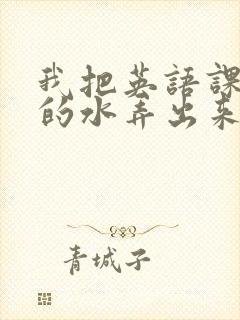 我把英語課
的水弄出來
青城子